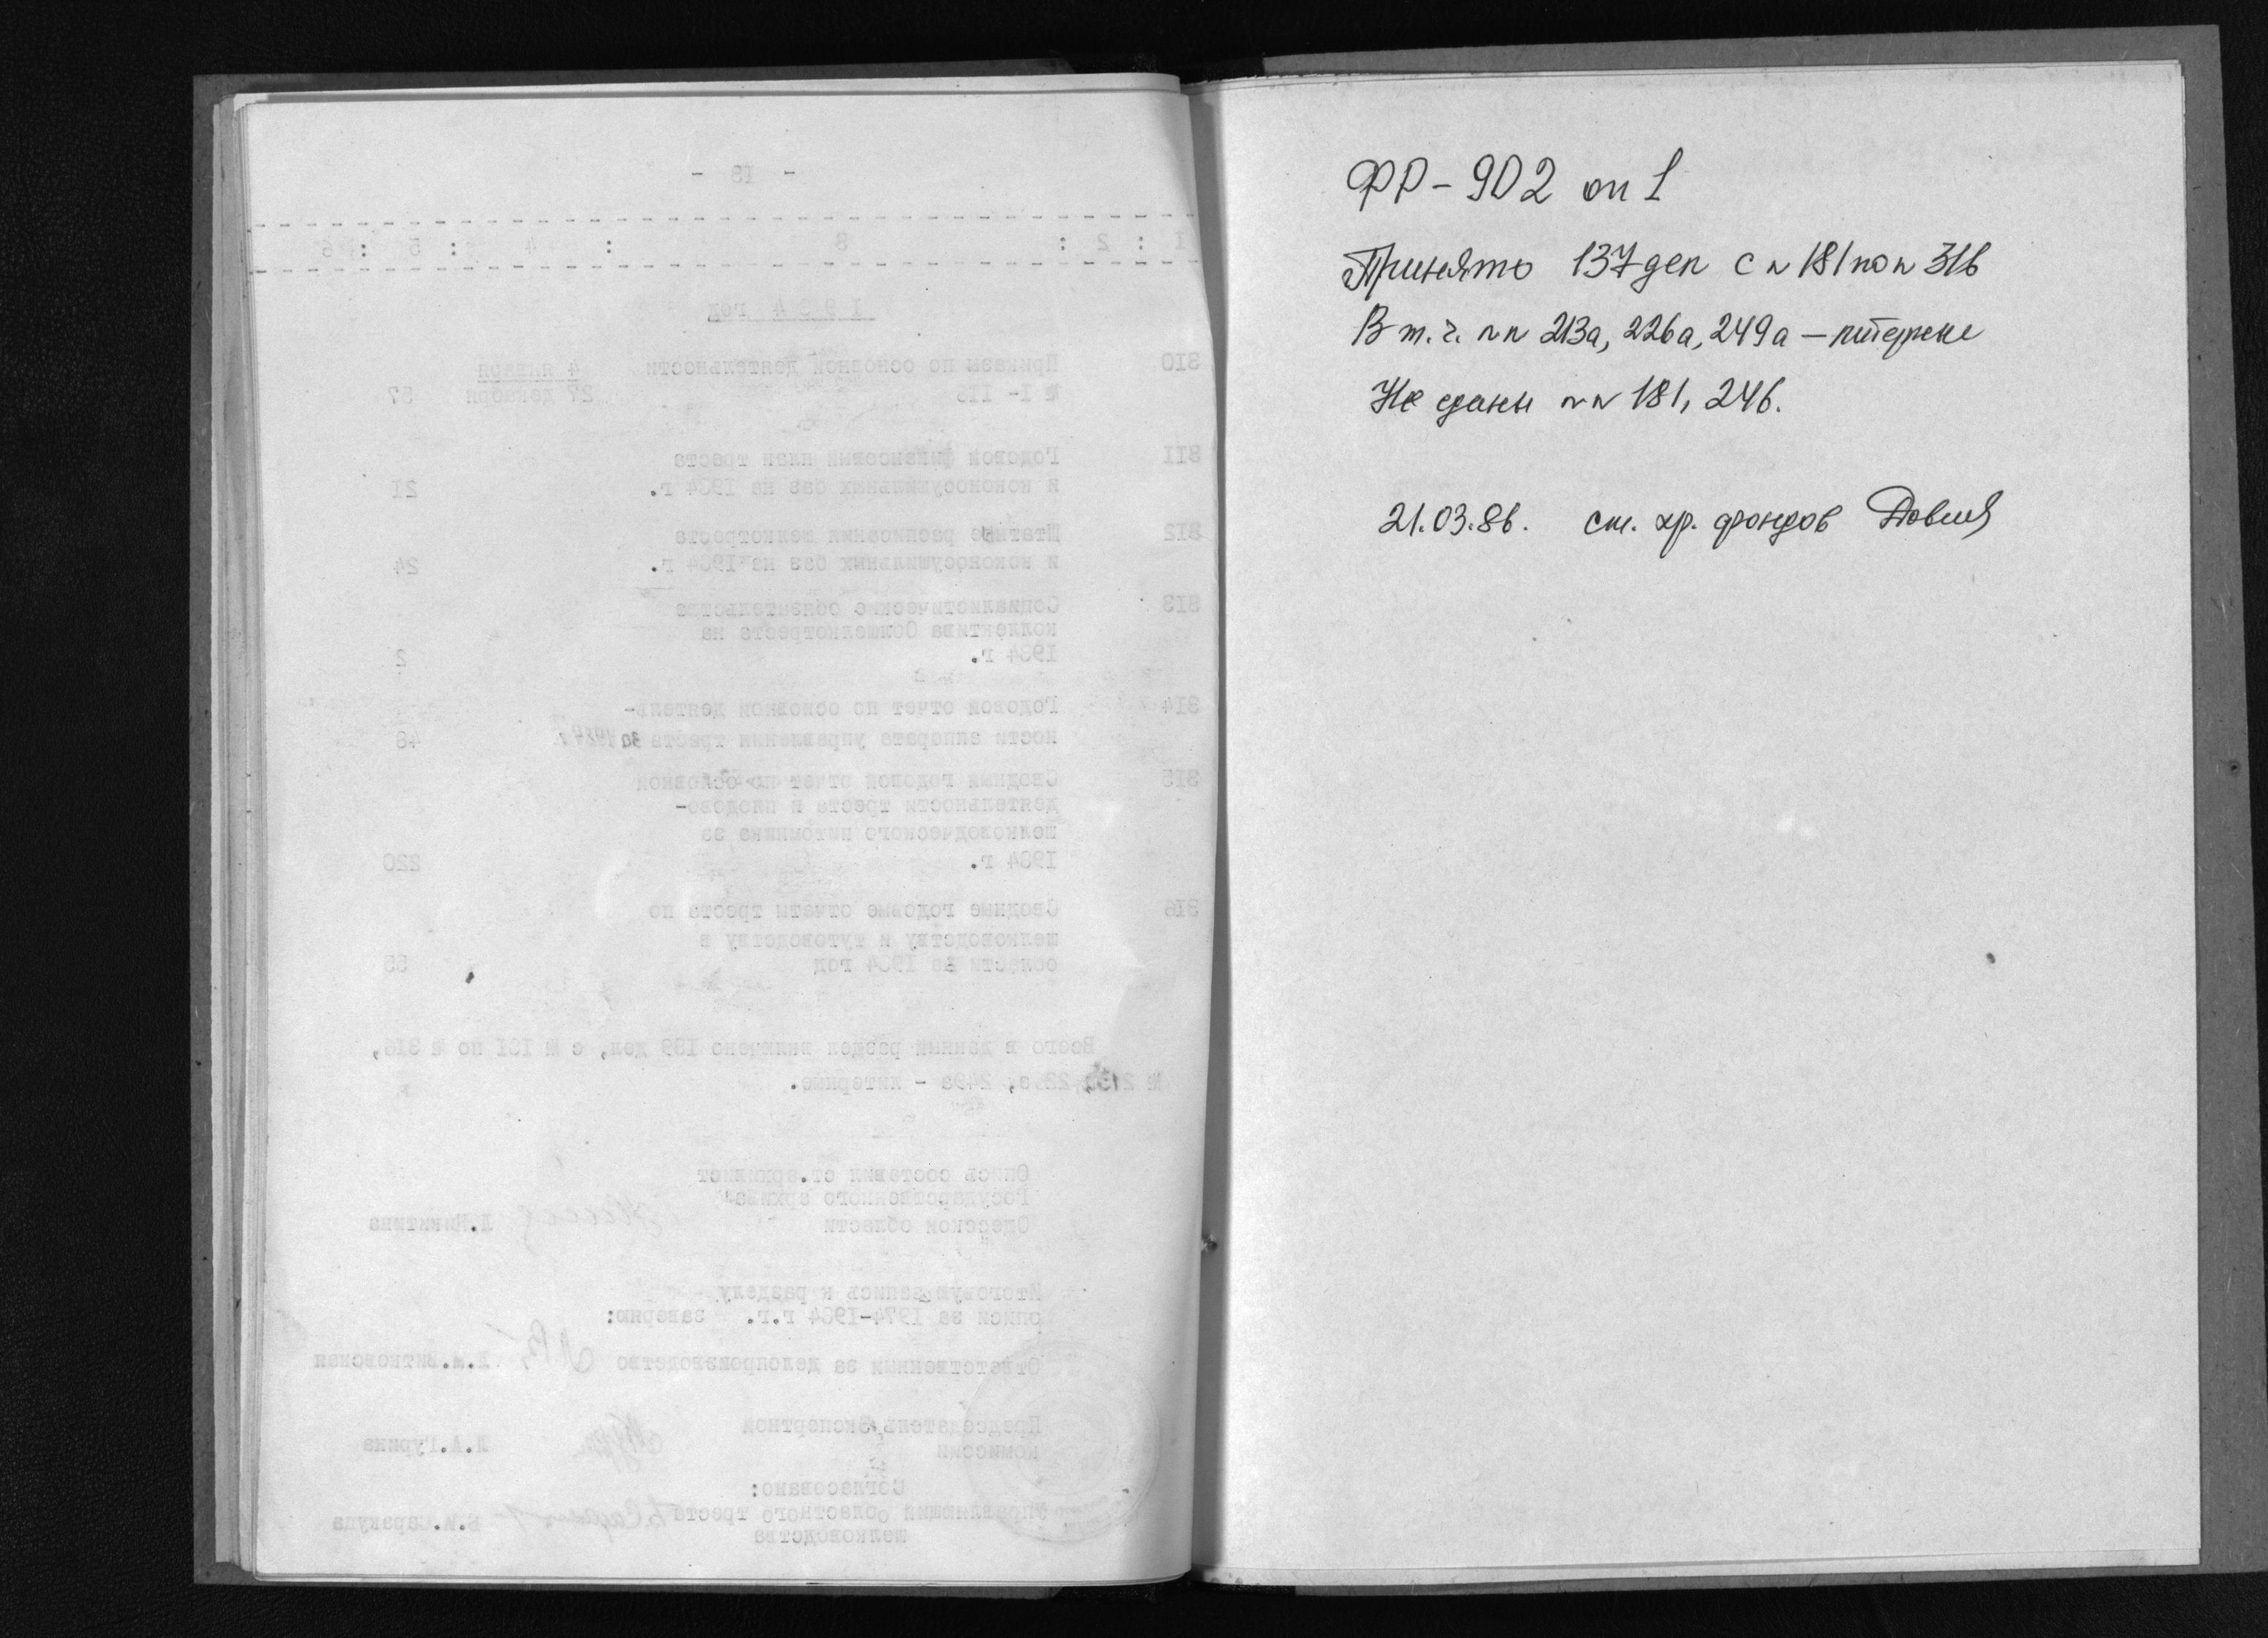 ФР-902 оп 1
Принято 137 дел с № 181 по № 316
В т.ч. №№ 213а, 226а, 249а — литерные
Не сданы №№ 181, 246.
21.03.86. ст. хр. фондов
- 18 -
1 : 2 : 3 : 4 : 5 : 6
1984 год
310 Приказы по основной деятельности 4 января
27 декабря 57
311 Годовой финансовый план треста
и коконосушильных баз на 1984 г. 21
312 Штатные расписания шелкотреста
и коконосушильных баз на 1984 г. 24
313 Социалистические обязательства
коллектива Облшелкотреста на
1984 г. 2
314 Годовой отчет по основной деятель-
ности аппарата управления треста за 1984 г. 48
315 Сводный годовой отчет по основной
деятельности треста и плодово-
шелководческого питомника за
1984 г. 220
316 Сводные годовые отчеты треста по
шелководству и тутоводству в
области за 1984 год 55
Всего в данный раздел включено 139 дел, с № 181 по № 316,
№ 213а, 226а, 249а - литерные.
Опись составил ст.архивист
Государственного архива
Одесской области Л.Никитина
Итоговую запись к разделу
описи за 1974-1984 г.г. заверяю:
Ответственный за делопроизводство
Председатель экспертной
комиссии Л.А.Гурина
Согласовано:
Управляющий областного треста
шелководства